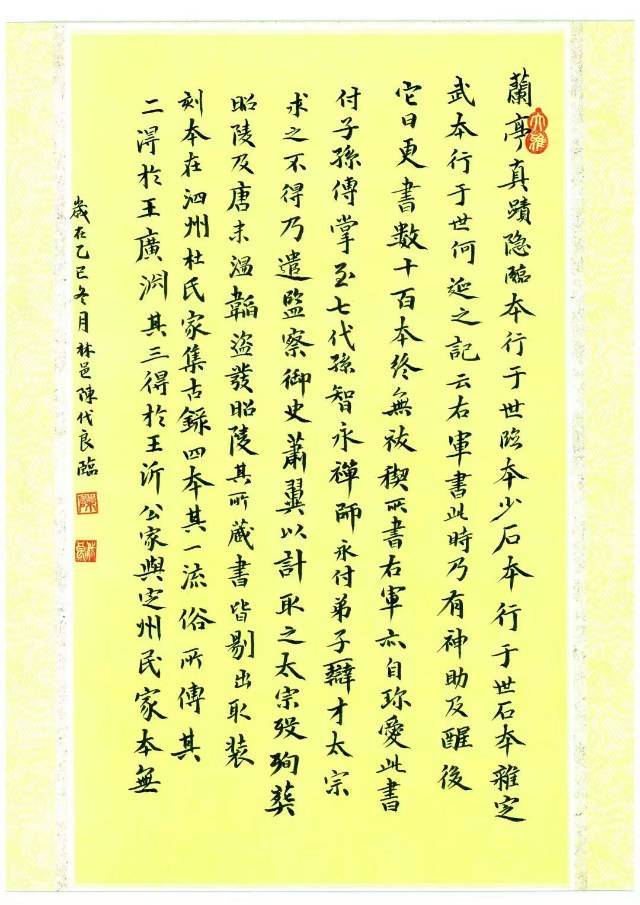 蘭亭真蹟隐臨本行于世臨本少石本行于世石本雜定
武本行于世何延之記云右軍書此時乃有神助及醒後
它日更書数十百本終無祓稧所書右軍亦自珎愛此書
付子孫傳掌至七代孫智永禪師永付弟子辯才太宗
求之不得乃遣監察御史蕭翼以計取之太宗殁殉葬
昭陵及唐末温韜盗發昭陵其所蔵書皆剔出取装
刻本在泗州杜氏家集古録四本其一流俗所傳其
二淂於王廣渊其三得於王沂公家與定州民家本無
歲在乙巳冬月林邑陳代良臨